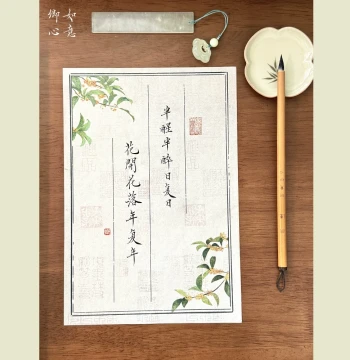 半醒半醉日復日
花開花落年復年
如意
御心